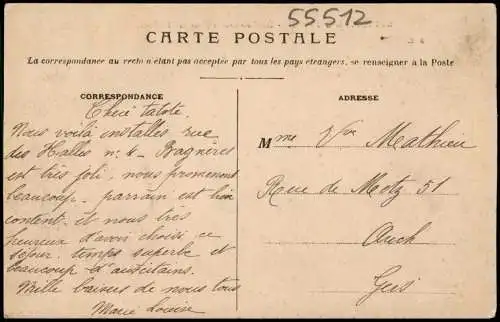 55512
CARTE POSTALE
La correspondance au recto n'étant pas acceptée par tous les pays étrangers, se renseigner à la Poste
CORRESPONDANCE
Cheré tatote.
Nous voilà installés rue
des Halles n: 4 - Bagnères
est très joli. nous promenons
beaucoup. parrain est bien
content. et nous très
heureux d'avoir choisi ce
séjour. temps superbe et
beaucoup d'auscitains.
Mille baises de nous tous
Marie Louise
ADRESSE
Mme Vve Mathieu
Rue de Metz 51
Auch
Gers